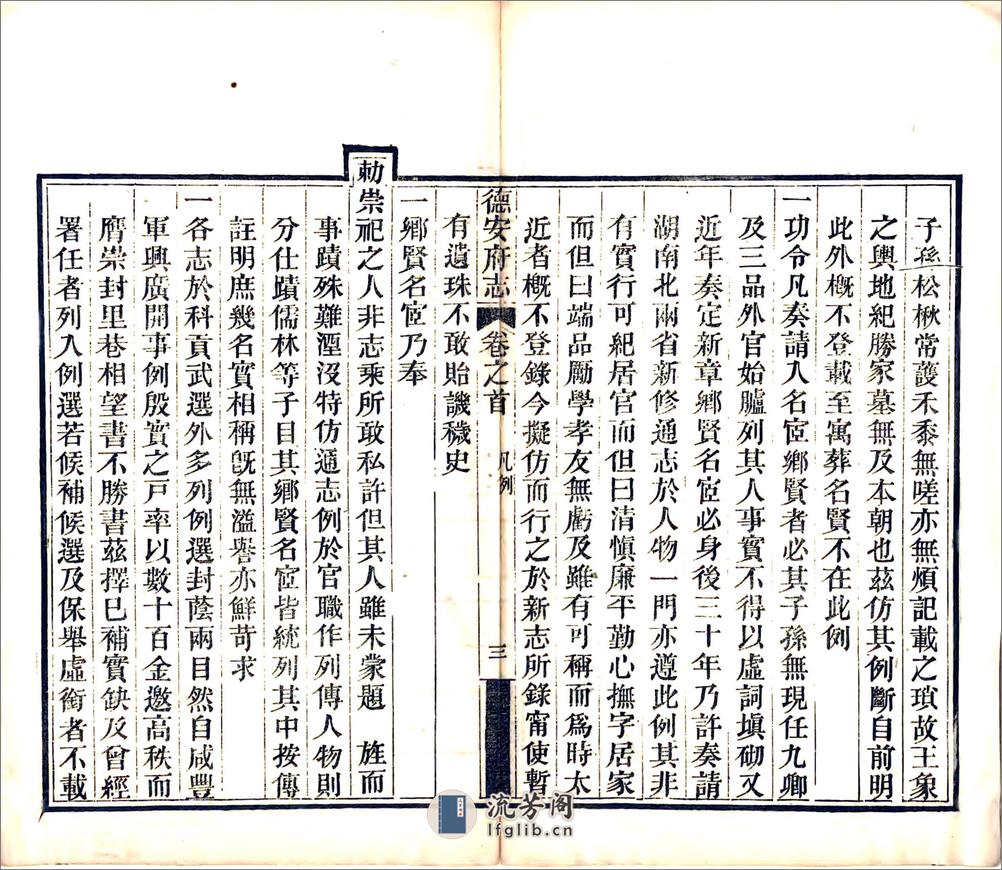 子孫松楸常護禾黍無嗟亦無煩記載之瑣故王象
之輿地紀勝家墓無及本朝也茲仿其例斷自前明
此外概不登載至寓葬名賢不在此例
一功令凡奏請入名宦鄉賢者必其子孫無現任九卿
及三品外官始臚列其人事實不得以虛詞塡砌又
近年奏定新章鄉賢名宦必身後三十年乃許奏請
湖南北兩省新修通志於人物一門亦遵此例其非
有實行可紀居官而但曰清愼廉平勤心撫字居家
而但曰端品勵學孝友無虧及雖有可稱而爲時太
近者槪不登錄今擬仿而行之於新志所錄甯使暫
德安府志 卷之首 凡例 三
有遺珠不敢貽譏穢史
一鄉賢名宦乃奉
勅崇祀之人非志乘所敢私許但其人雖未蒙題 旌而
事蹟殊難湮沒特仿通志例於官職作列傳人物則
分仕蹟儒林等子目其鄉賢名宦皆統列其中按傳
註明庶幾名實相稱旣無溢譽亦鮮苛求
一各志於科貢武選外多列例選封蔭兩目然自咸豐
軍興廣開事例殷實之戶率以數十百金邀高秩而
膺崇封里巷相望書不勝書茲擇已補實缺及曾經
署任者列入例選若候補候選及保舉虛銜者不載
流芳阁
lfglib.cn